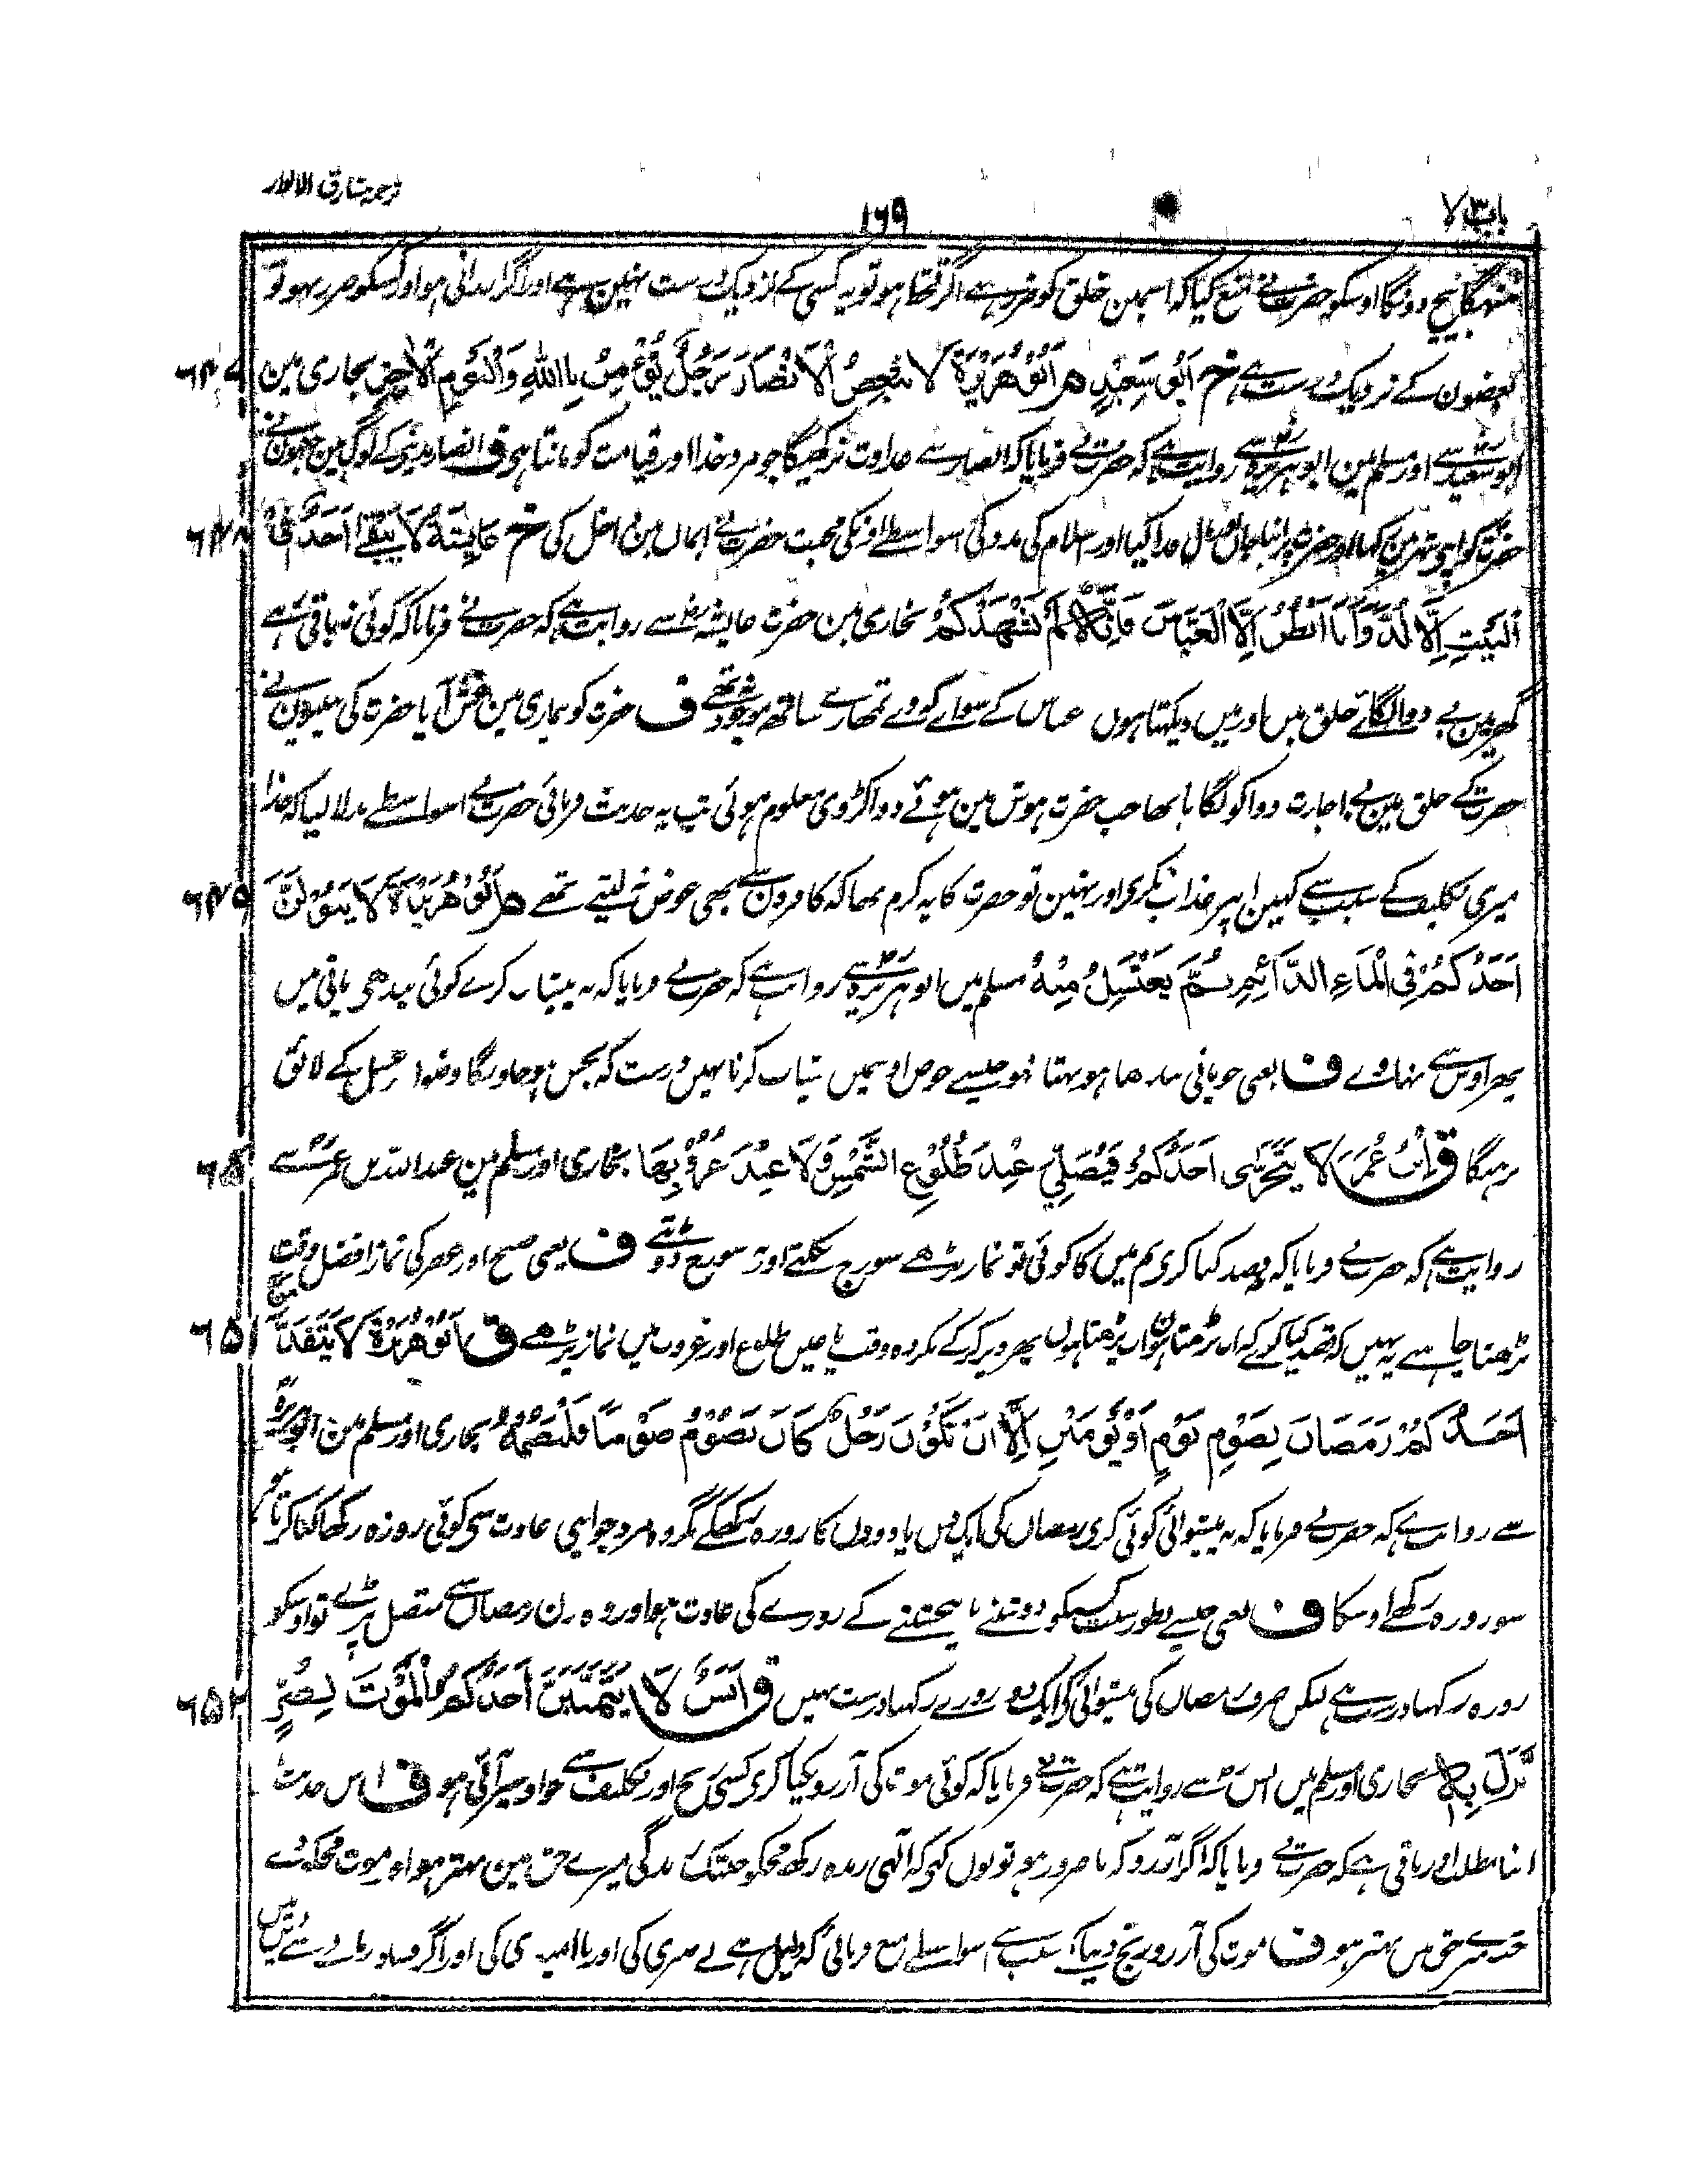 باب ٣ ٧
١٦٩
ترجمہ مشارق الانوار
مہنگا بیچ دونگا اوسکو حضرت نے منع کیا کہ اسمین خلق کو ضرر ہے اگر قحط ہو تو یہ کسی کے نزدیک درست نہین ہے اور اگر ارزانی ہو اور اسکو ضرر نہو تو
بعضون کے نزدیک درست ہے خ اَبُو سَعِيْدٍ هر اَبُو هُرَيْرَةَ لَا يُبْغِضُ الْاَنْصَارَ رَجُلٌ يُؤْمِنُ بِاللهِ وَالْيَوْمِ الْاٰخِرِ بخاری مین ٦٤٧
ابو سعید سے اور مسلم مین ابو ہریرہ سے روایت ہے کہ حضرت نے فرمایا کہ انصار سے عداوت نرکھیگا جو مرد خدا اور قیامت کو مانتا ہو ف انصار مدینہ کے لوگ ہین جنہون نے
حضرت کو اپنے شہر مین رکھا اور حضرت پر اپنا جان مال فدا کیا اور اسلام کی مدد کی اسواسطے اونکی محبت حضرت نے ایمان مین داخل کی خ عَائِشَةُ لَا يَبْقٰى اَحَدٌ فِي ٦٤٨
الْبَيْتِ اِلَّا لُدَّ وَاَنَا اَنْظُرُ اِلَّا الْعَبَّاسَ فَاِنَّهٗ لَمْ يَشْهَدْكُمْ بخاری مین حضرت عایشہ سے روایت ہے کہ حضرت نے فرمایا کہ کوئی نہ باقی رہے
گھر مین بے دوا لگائے حلق میں اور میں دیکہتا ہوں عباس کے سوائے کہ وے تمھارے ساتھ موجود نہ تھے ف حضرت کو بیماری مین غش آیا حضرت کی بیبیون نے
حضرت کے حلق مین بے اجازت دوا کو لگایا تھا جب حضرت ہوش مین ہوئے دوا کڑوی معلوم ہوئی تب یہ حدیث فرمائی حضرت نے اسواسطے بدلا لیا کہ خدا
میری تکلیف کے سبب سے کہین ان پر عذاب نکرے اور نہین تو حضرت کا یہ کرم تھا کہ کافرون سے بھی عوض نہ لیتے تھے هر اَبُو هُرَيْرَةَ لَا يَبُوْلَنَّ ٦٤٩
اَحَدُكُمْ فِي الْمَاءِ الدَّائِمِ ثُمَّ يَغْتَسِلُ مِنْهُ مسلم میں ابو ہریرہ سے روایت ہے کہ حضرت نے فرمایا کہ نہ پیشاب کرے کوئی بندھے پانی میں
پھر اوس سے نہاوے ف یعنی جو پانی بندھا ہو بہتا نہو جیسے حوض اوسمیں پیشاب کرنا نہیں درست کہ نجس ہو جاویگا وضو اور غسل کے لائق
نرہیگا ق اِبْنُ عُمَرَ لَا يَتَحَرّٰى اَحَدُكُمْ فَيُصَلِّيَ عِنْدَ طُلُوْعِ الشَّمْسِ وَلَا عِنْدَ غُرُوْبِهَا بخاری اور مسلم مین عبد اللہ بن عمر سے ٦٥٠
روایت ہے کہ حضرت نے فرمایا کہ نہ قصد کیا کرے تم میں کا کوئی تو نماز پڑھے سورج نکلتے اور نہ سورج ڈوبتے ف یعنی صبح اور عصر کی نماز افضل وقت میں
پڑھنا چاہیے یہ نہیں کہ قصد کیا کرے کہ اب پڑھتا ہوں اب پڑھتا ہوں پھر دیر کرکے مکروہ وقت یا عین طلوع اور غروب میں نماز پڑھے ق اَبُو هُرَيْرَةَ لَا يَتَقَدَّمَنَّ ٦٥١
اَحَدُكُمْ رَمَضَانَ بِصَوْمِ يَوْمٍ اَوْ يَوْمَيْنِ اِلَّا اَنْ يَكُوْنَ رَجُلٌ كَانَ يَصُوْمُ صَوْمًا فَلْيَصُمْهُ بخاری اور مسلم مین ابو ہریرہ
سے روایت ہے کہ حضرت نے فرمایا کہ نہ پیشوائی کوئی کرے رمضان کی ایک دن یا دو دن کا روزہ رکھکے مگر وہ مرد جو اپنی عادت سے کوئی روزہ رکھا کرتا تھا
سو روزہ رکھے اوسکا ف یعنی جیسے بطور سنت کسیکو دوشنبے یا پنجشنبے کے روزے کی عادت ہو اور وہ دن رمضان سے متصل پڑے تو اوسکو
روزہ رکہنا درست ہے لیکن صرف رمضان کی پیشوائی کو ایک دو روزے رکہنا درست نہیں ق اَنَسٌ لَا يَتَمَنَّيَنَّ اَحَدُكُمُ الْمَوْتَ لِضُرٍّ ٦٥٢
نَزَلَ بِهٖ بخاری اور مسلم میں انس سے روایت ہے کہ حضرت نے فرمایا کہ کوئی موت کی آرزو نکیا کرے کسی رنج اور تکلیف سے جو اوسپر آئی ہو ف اس حدیث
اتنا مطلب اور باقی ہے کہ حضرت نے فرمایا کہ اگر آرزو کرنا ضرور ہو تو یوں کہے کہ الٰہی زندہ رکھ مجھکو جبتک زندگی میرے حق مین بہتر ہو اور موت مجھکو دے
جب میرے حق میں بہتر ہو ف موت کی آرزو رنج دنیا کے سبب سے اسواسطے منع فرمائی کہ دلیل ہے بے صبری کی اور نا امیدی کی اور اگر فساد زمانے